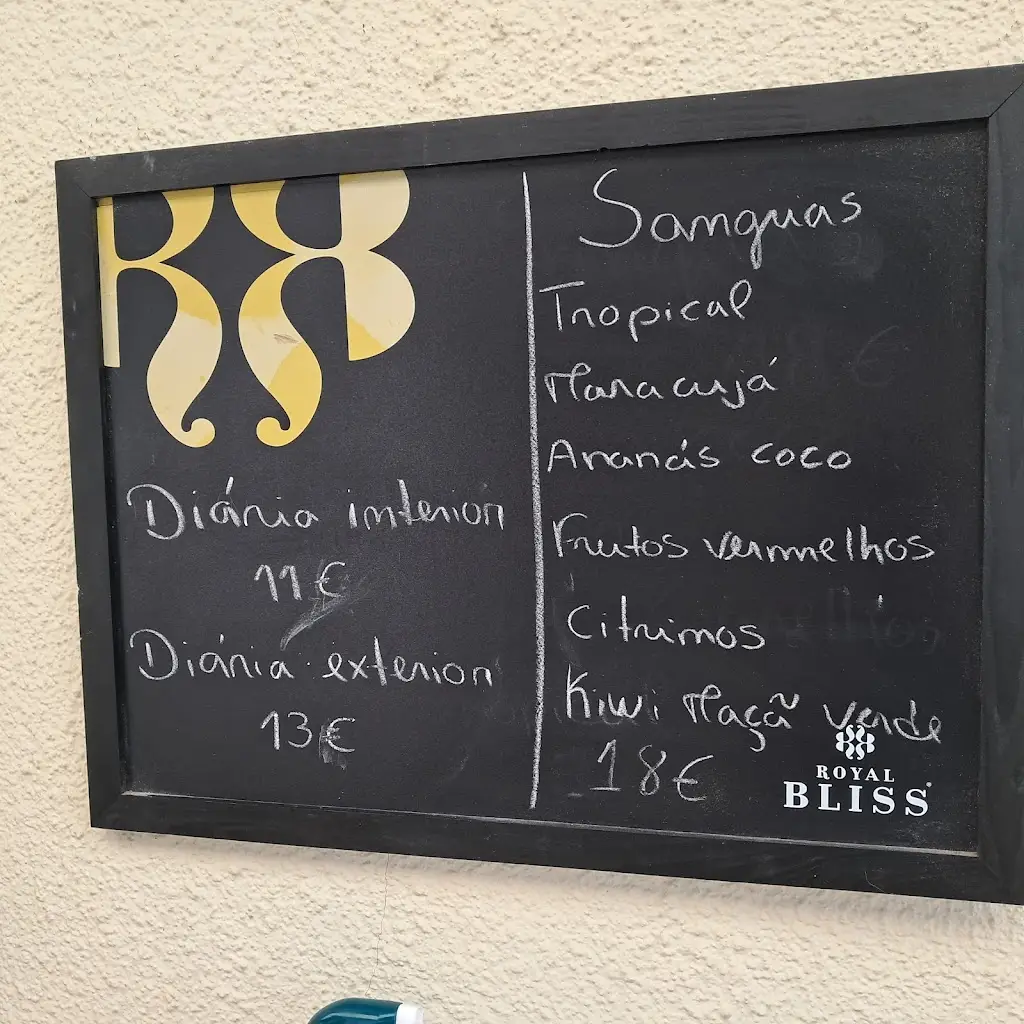 Diária interior
11€
Diária exterior
13€
Sangrias
Tropical
Maracujá
Ananás coco
Frutos vermelhos
Citrinos
Kiwi Maçã verde
18€
ROYAL
BLISS